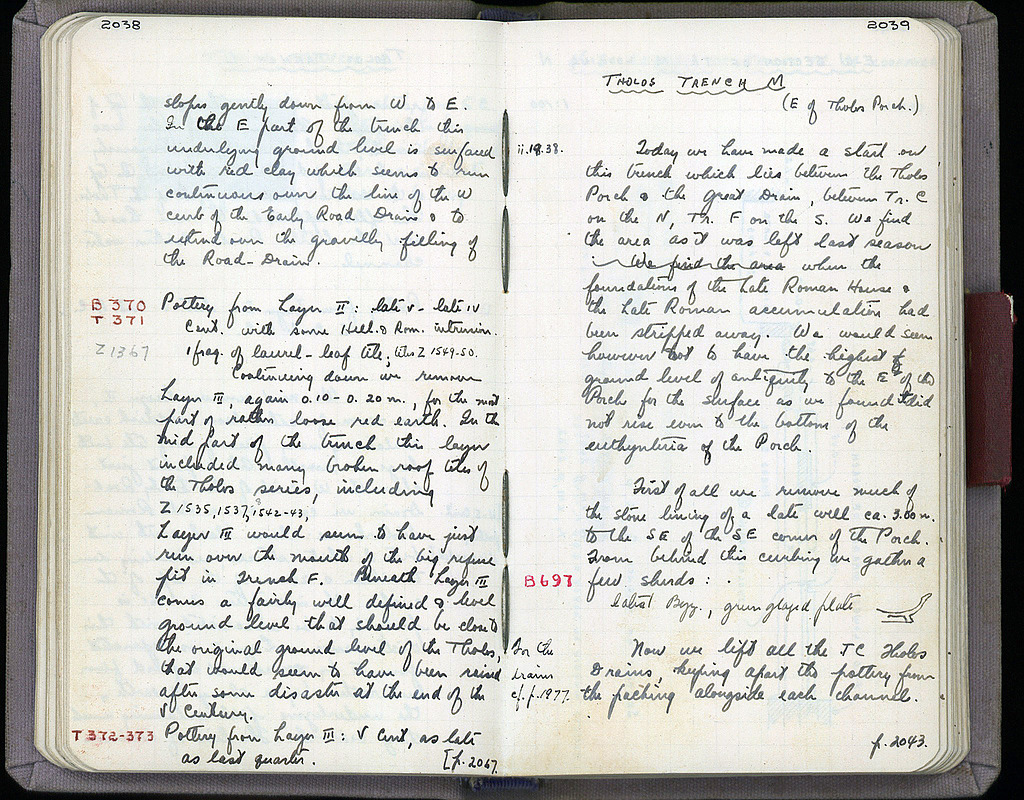 2038
slopes gently down from W to E.
In the E part of the trench this
underlying ground level is surfaced
with red clay which seems to run
continuous over the line of the W
curb of the Early Road Drain & to
extend over the gravelly filling of
the Road-Drain.
B 370
T 371
Pottery from Layer II: late V - late IV
cent. with some Hell. & Rom. intrusion.
Z 1367
1 frag. of laurel-leaf tile; tiles Z 1549-50.
Continuing down we remove
Layer III, again 0.10-0.20 m., for the most
part of rather loose red earth. In the
mid part of the trench this layer
included many broken roof tiles of
the Tholos series, including
Z 1535, 1537, 1542-43,
Layer III would seem to have just
run over the mouth of the big refuse
pit in Trench F. Beneath Layer III
comes a fairly well defined & level
ground level that should be close to
the original ground level of the Tholos,
that would seem to have been raised
after some disaster at the end of the
V Century.
T 372-373
Pottery from Layer III: V Cent, as late
as last quarter.
[p. 2067.
2039
THOLOS TRENCH M
(E of Tholos Porch.)
ii.18.38.
Today we have made a start on
this trench which lies between the Tholos
Porch & the Great Drain, between Tr. C
on the N, Tr. F on the S. We find
the area as it was left last season
We find the area when the
foundations of the Late Roman House &
the Late Roman accumulation had
been stripped away. We would seem
however not to have the highest
ground level of antiquity to the E of the
Porch for the surface as we found it did
not rise even to the bottom of the
euthynteria of the Porch.
First of all we remove much of
the stone lining of a late well ca. 3.00 m.
to the SE of the SE corner of the Porch.
From behind this curbing we gather a
B 697
few sherds:
latest Byz., green glazed plate
For the
drains
cf. p. 1977.
Now we lift all the TC Tholos
Drains, keeping apart the pottery from
the packing alongside each channel.
p. 2043.